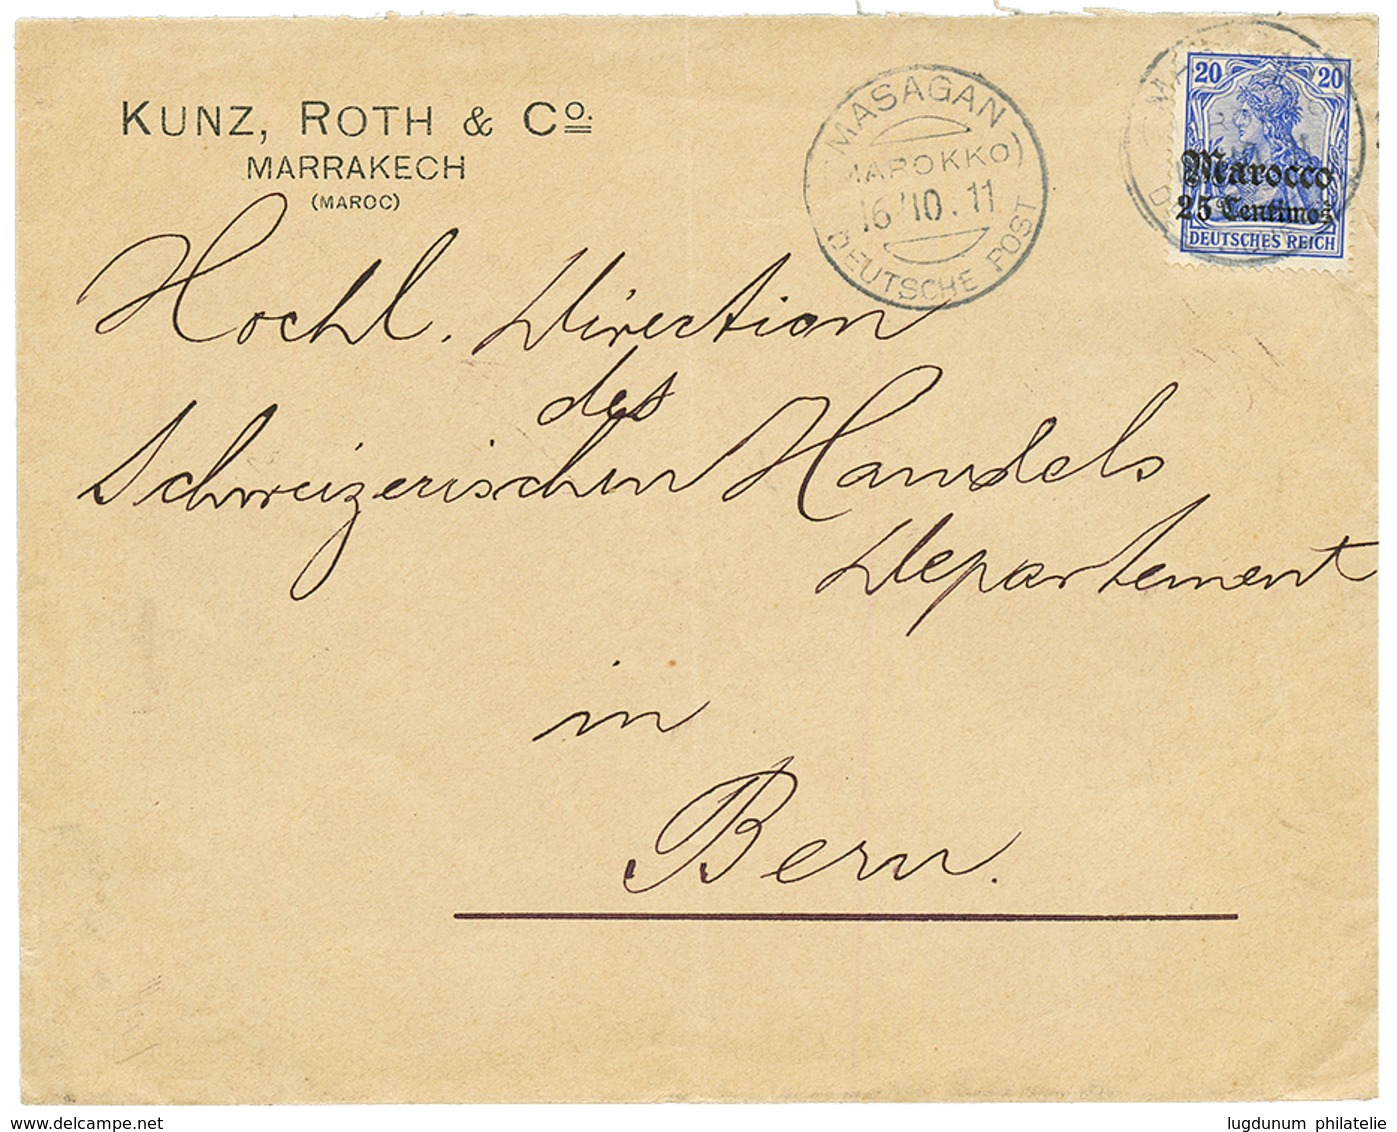 KUNZ, ROTH & Co.
MARRAKECH
(MAROC)
MASAGAN
MAROKKO)
16/10.11
DEUTSCHE POST
20 20
Marocco
25 Centimos
DEUTSCHES REICH
Hochl. Direction
des
Schweizerischen Handels
Departement
in
Bern.
lugdunum philatelie